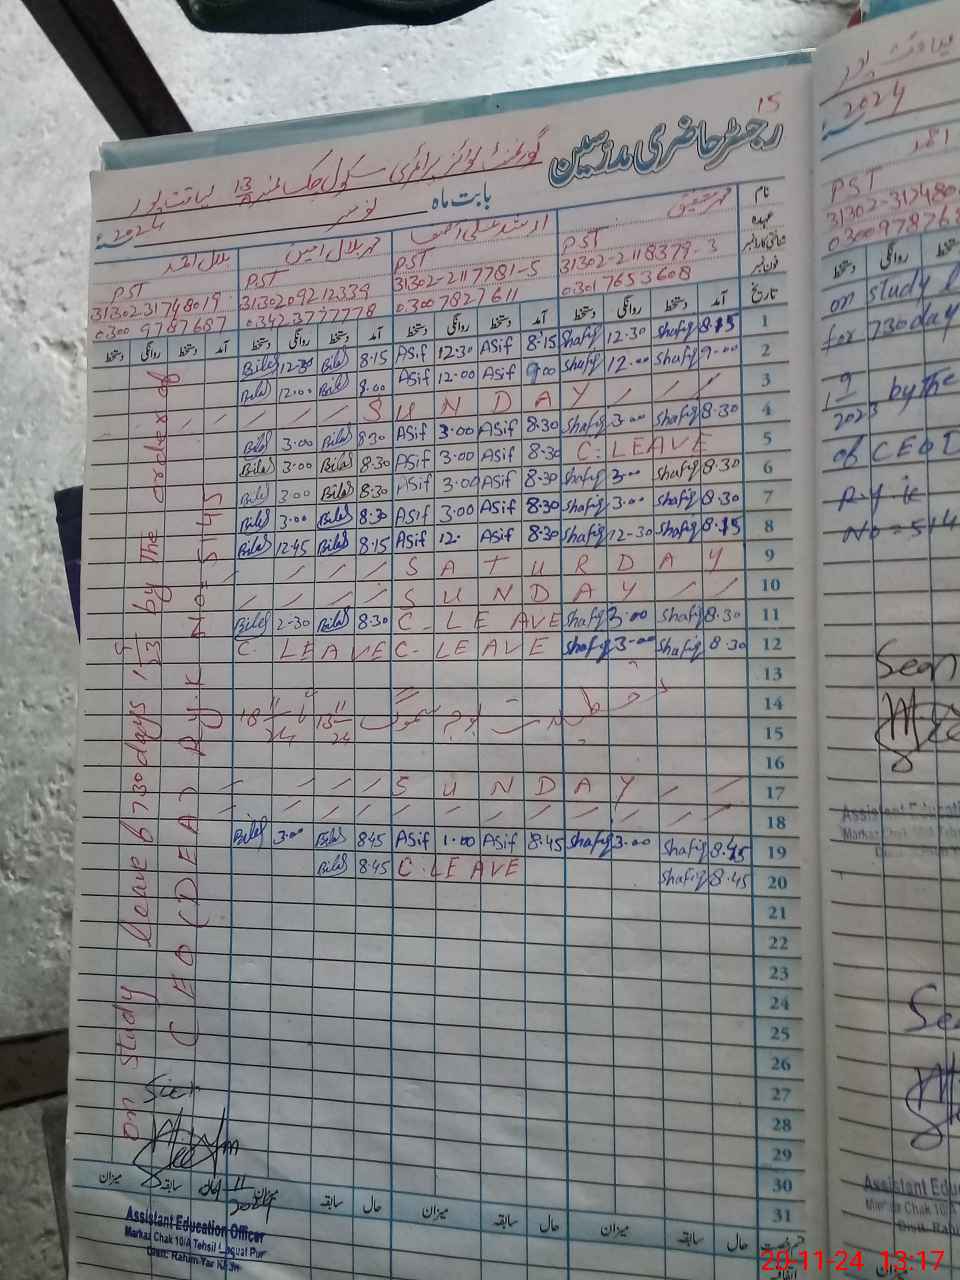 15
رجسٹر حاضری مدرسین
گورنمنٹ بوائز پرائمری سکول چک نمبر 13/A لیاقت پور
بابت ماہ نومبر 2024ء
نام محمد شفیق ارشد علی آصف محمد بلال امین بلال احمد
عہدہ PST PST PST PST
شناختی کارڈ نمبر 31302-2118379-3 31302-2117781-5 3130209212339 3130231748019
فون نمبر 03017653608 03007827611 03423797778 0300 9787687
تاریخ آمد دستخط روانگی دستخط آمد دستخط روانگی دستخط آمد دستخط روانگی دستخط آمد دستخط روانگی دستخط
Bilal 12-30 Bilal 8.15 ASif 12.30 ASif 8.15 Shafiq 12-30 Shafiq 8.15 1
Bilal 12.00 Bilal 9.00 ASif 12.00 ASif 9.00 Shafiq 12.00 Shafiq 9.00 2
S U N D A Y 3
Bilal 3.00 Bilal 8.30 ASif 3.00 ASif 8.30 Shafiq 3.00 Shafiq 8.30 4
Bilal 3.00 Bilal 8.30 ASif 3.00 ASif 8.30 C. LEAVE 5
Bilal 3.00 Bilal 8.30 ASif 3.00 ASif 8.30 Shafiq 3.00 Shafiq 8.30 6
Bilal 3.00 Bilal 8.30 ASif 3.00 ASif 8.30 Shafiq 3.00 Shafiq 8.30 7
Bilal 12.45 Bilal 8.15 ASif 12. ASif 8.30 Shafiq 12-30 Shafiq 8.15 8
S A T U R D A Y 9
S U N D A Y 10
Bilal 2-30 Bilal 8.30 C. LEAVE Shafiq 3.00 Shafiq 8.30 11
C. LEAVE C. LEAVE Shafiq 3.00 Shafiq 8.30 12
13
14
بوجہ سموگ 13-11-24 تا 18-11-24
15
16
S U N D A Y 17
18
Bilal 3.00 Bilal 8.45 ASif 1.00 ASif 8.45 Shafiq 3.00 Shafiq 8.45 19
Bilal 8.45 C. LEAVE Shafiq 8.45 20
21
22
23
24
25
26
27
28
29
30
31
on study leave 730 days by the order of
C E O (D E A) R.Y.K No= 5145
Seen
11
2024
میزان سابقہ حال میزان سابقہ حال میزان سابقہ حال میزان سابقہ حال
Assistant Education Officer
Markaz Chak 10/A Tehsil Liaquat Pur
Distt. Rahim Yar Khan
لیاقت پور
2024
احمد
PST
31302-317480
030097876
دستخط روانگی
on study l
for 730 day
2023 by the
of CEO D
R.Y.K
No = 514
Seen
Assistant Educati
Markaz Chak 10/A Te
Distt. Rahim Y
See
Assistant Edu
Markaz Chak 10
Distt. Rahim
20-11-24 13:17